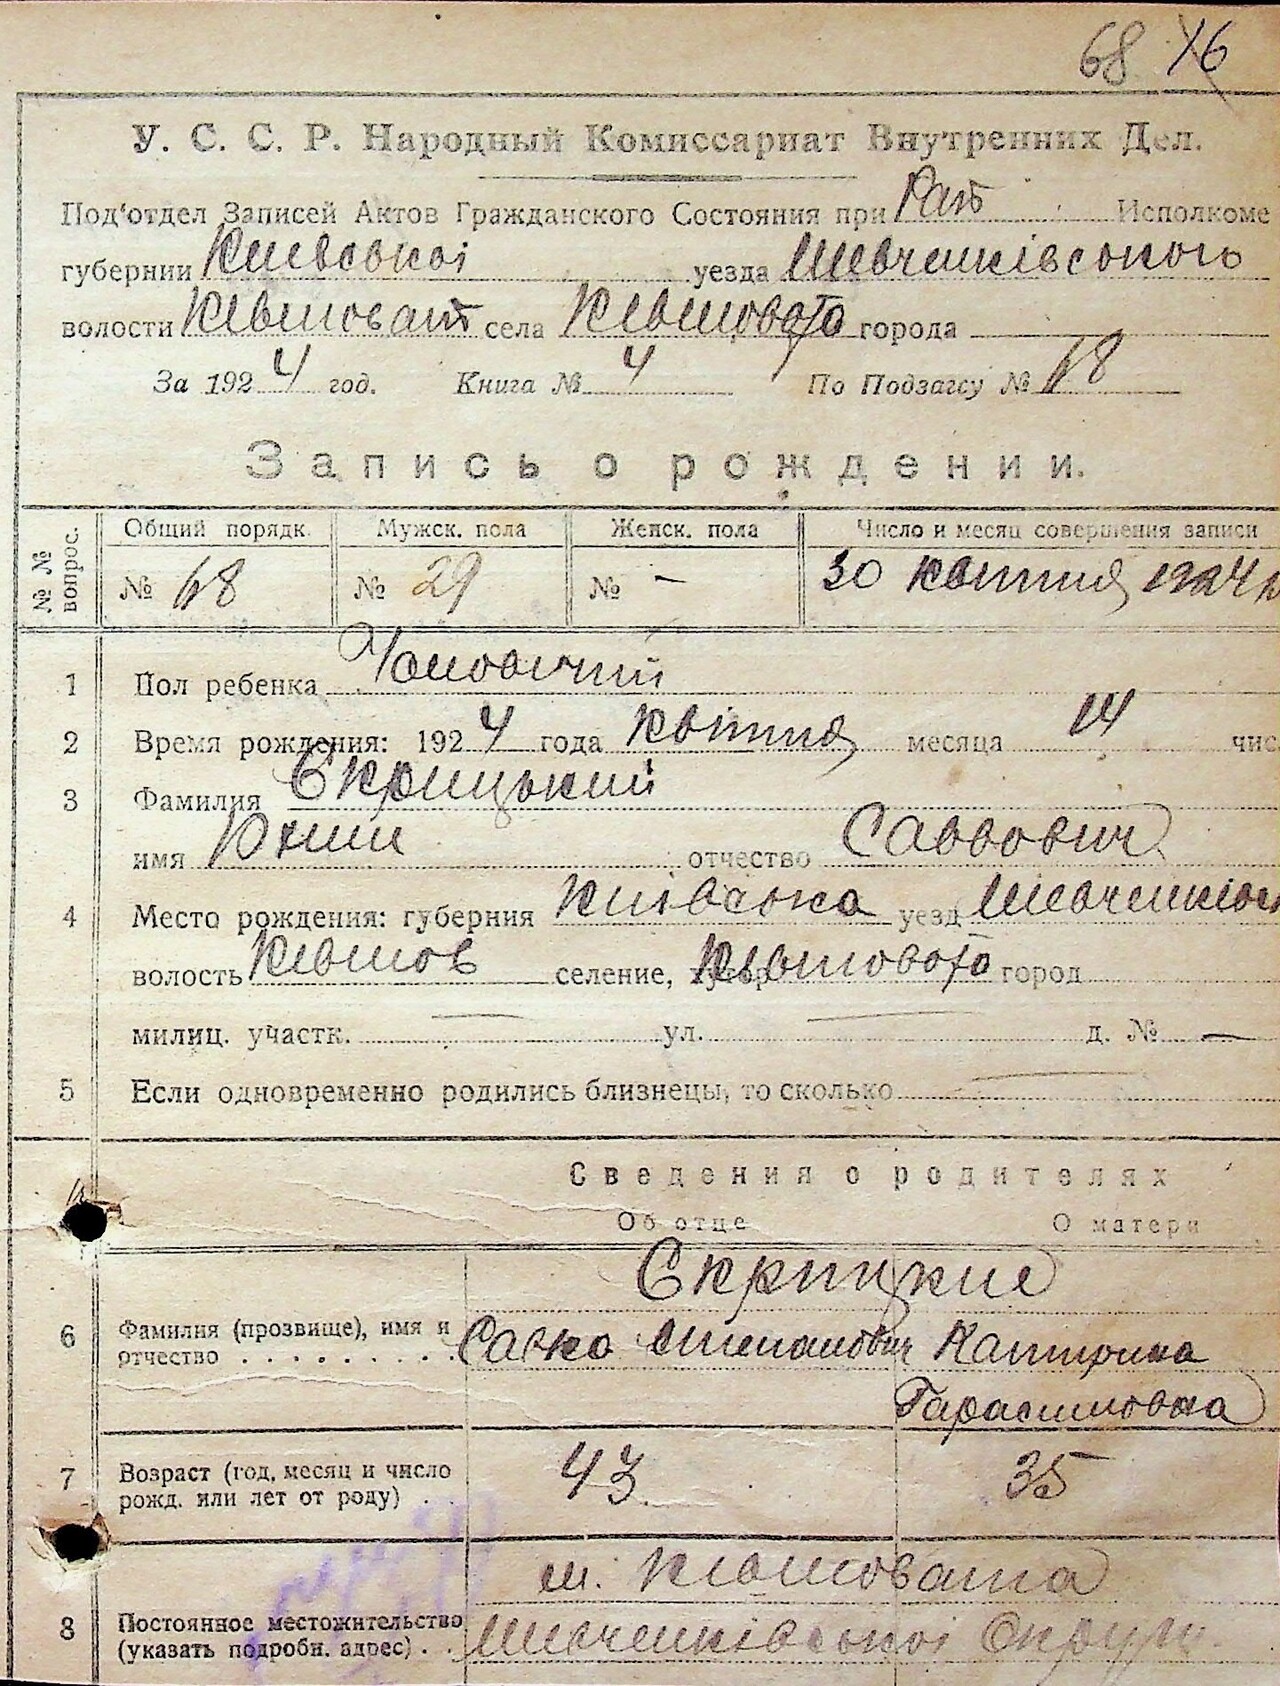 68 76
У. С. С. Р. Народный Комиссариат Внутренних Дел.
Под'отдел Записей Актов Гражданского Состояния при Рай Исполкоме
губернии Київської уезда Шевченківського
волости села города
За 1924 год. Книга № 4 По Подзагсу № 68
Запись о рождении.
№ № вопрос.
Общий порядк. Мужск. пола Женск. пола Число и месяц совершения записи
№ 68 № 29 № - 30 квітня 1924 р
1 Пол ребенка Чоловічий
2 Время рождения: 1924 года Квітня месяца 14 чис.
3 Фамилия Скрицький
имя отчество Саввович
4 Место рождения: губерния Київська уезд Шевченківськ
волость селение, хутор город
милиц. участк. — ул. — д. № —
5 Если одновременно родились близнецы, то сколько —
Сведения о родителях
Об отце О матери
Скрицкие
6 Фамилия (прозвище), имя и Савко Степанович Катерина
отчество . . . . . . . . .
Гарасимовна
7 Возраст (год, месяц и число 43 35
рожд. или лет от роду) . .
м.
8 Постоянное местожительство
(указать подробн. адрес) . . Шевченківської Округи.